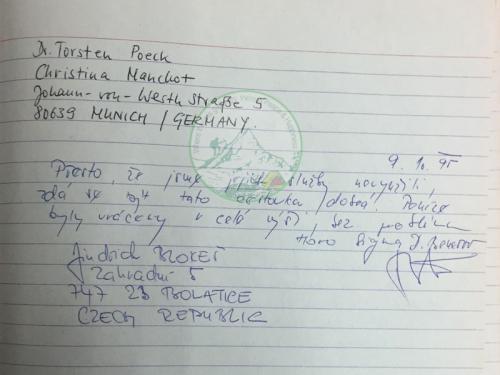 Dr. Torsten Poeck
Christina Manchot
Johann-von-Werth Straße 5
80639 MUNICH / GERMANY.
9. 10. 95
Přesto, že jsme jejich služby nevyužili,
zdá se být tato cestovka dobrá. Peníze
byly vráceny v celé výši, bez problému
Horo
Jindřich
Zahradní 5
747 23 BOLATICE
CZECH REPUBLIC